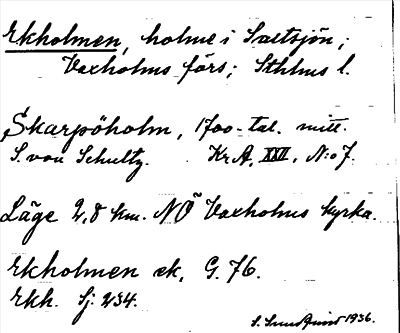 Ekholmen, holme i Saltsjön;
Vaxholms förs; Sthlms l.
Skarpöholm, 1700-tal. mitt.
S. von Schultz. Kr A, XXII, N:o 7.
Läge 2,8 km. NÖ Vaxholms kyrka.
Ekholmen ek, G. 76.
Ekh. Sj: 234.
S. 1936.